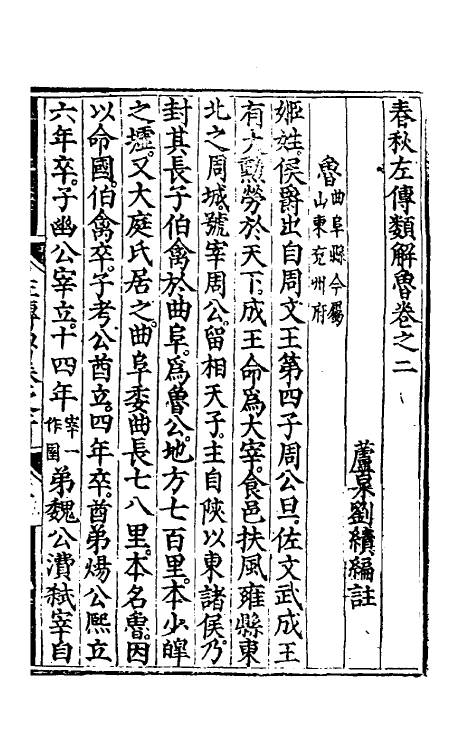 春秋左傳類解魯卷之二
蘆泉劉績編註
魯曲阜縣今屬山東兗州府
姬姓侯爵出自周文王第四子周公旦佐文武成王
有大勲勞於天下成王命爲大宰食邑扶風雍縣東
北之周城號宰周公留相天子主自陝以東諸侯乃
封其長子伯禽於曲阜爲魯公地方七百里本少皥
之墟又大庭氏居之曲阜委曲長七八里本名魯因
以命國伯禽卒子考公酋立四年卒酋弟煬公熙立
六年卒子幽公宰立十四年宰一作圉弟魏公㵒弒宰自